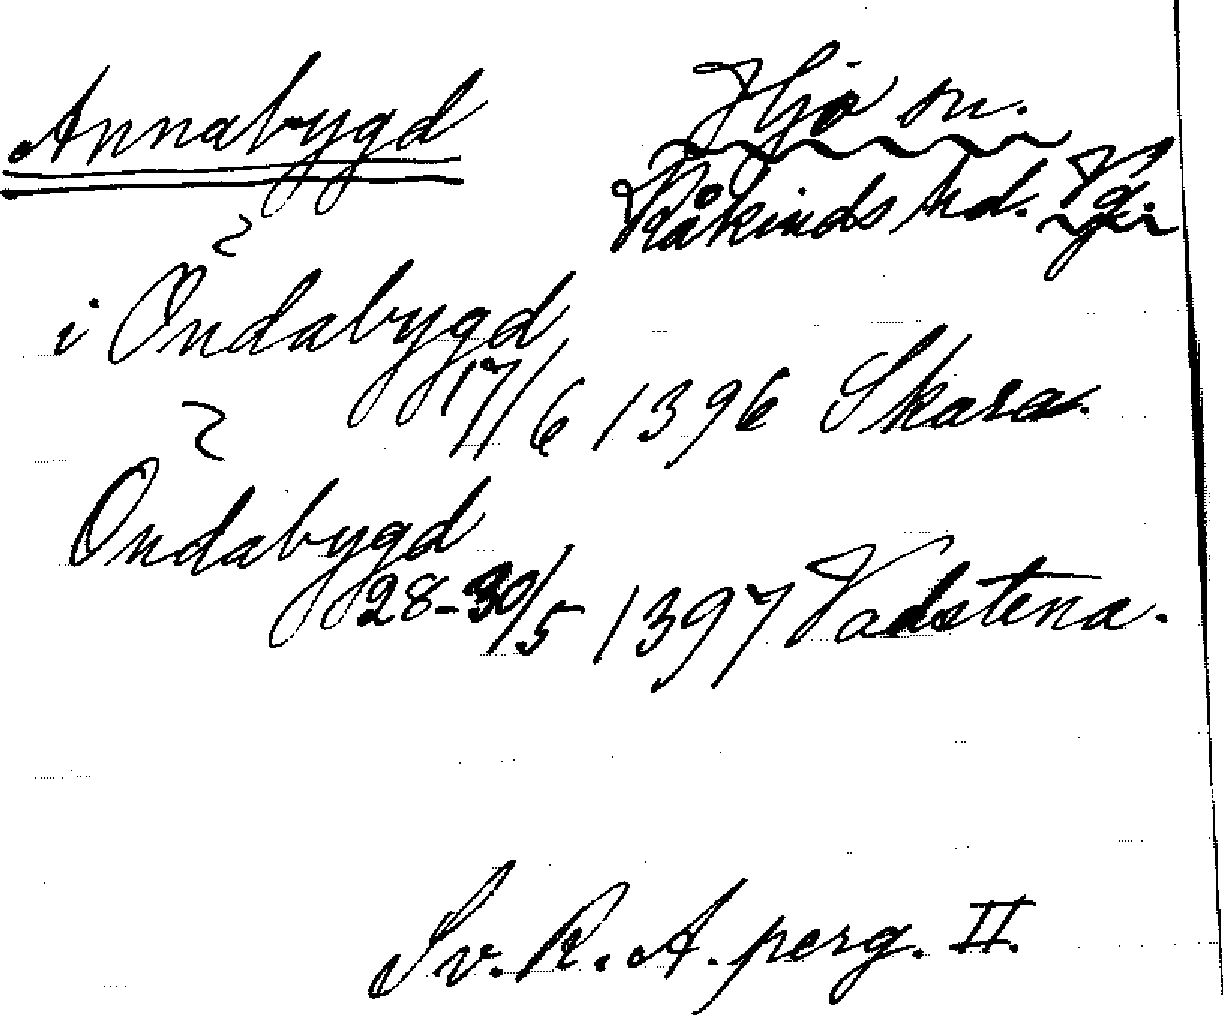 Annabygd Hjo sn.
Kåkinds hd. Vg.
i Ondabygd
17/6 1396 Skara.
Ondabygd
28-30/5 1397 Vadstena.
Sv. R. A. perg. II.